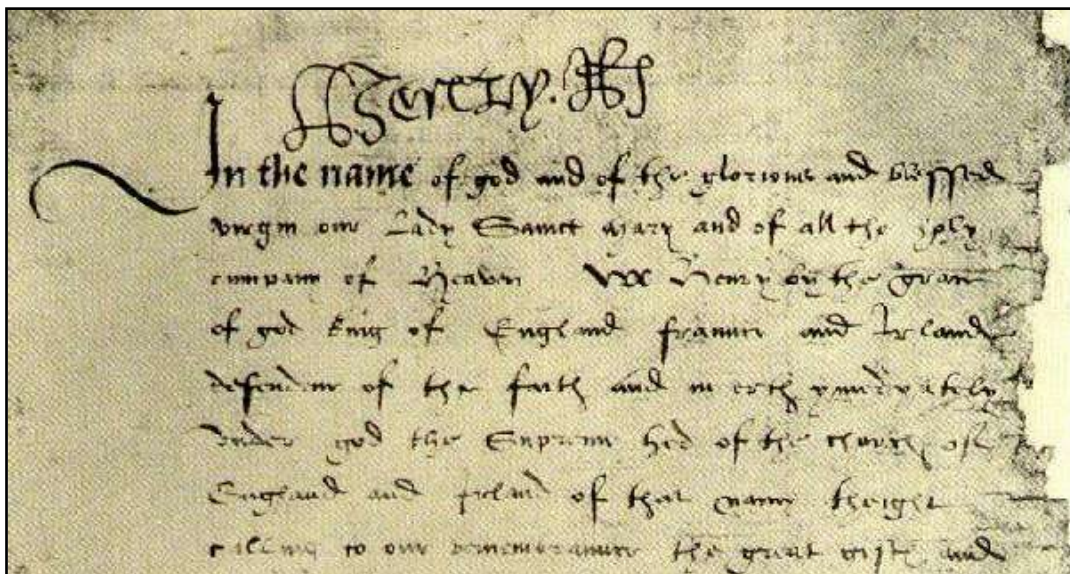 Henry R
In the name of god and of the glorious and blessed
virgin our Lady Sainct Mary and of all the holy
cumpany of Heaven We Henry by the grace
of god King of England Fraunce and Irland
defendeur of the feith and in erth ymedyately
vnder god the Supreme hed of the church of
England and Irland of that name theight
calling to our remembraunce the great gifts and